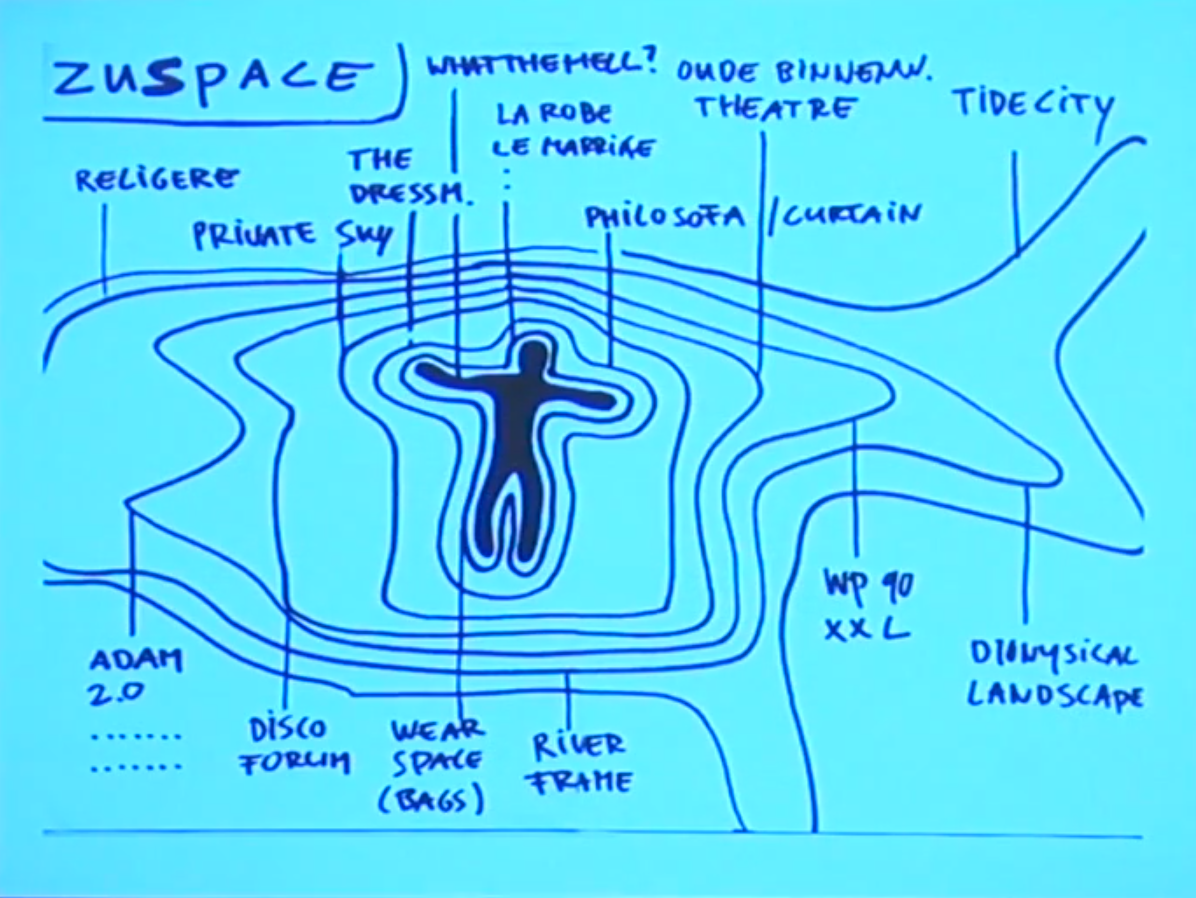 ZUSPACE
WHATTHEHELL?
OUDE BINNENW.
THEATRE
TIDECITY
LA ROBE
LE MARRIGE
THE
DRESSM.
RELIGERE
PRIVATE SKY
PHILOSOFA / CURTAIN
WP 90
XXL
ADAM
2.0
.......
.......
DIONYSICAL
LANDSCAPE
DISCO
FORUM
WEAR
SPACE
(BAGS)
RIVER
FRAME